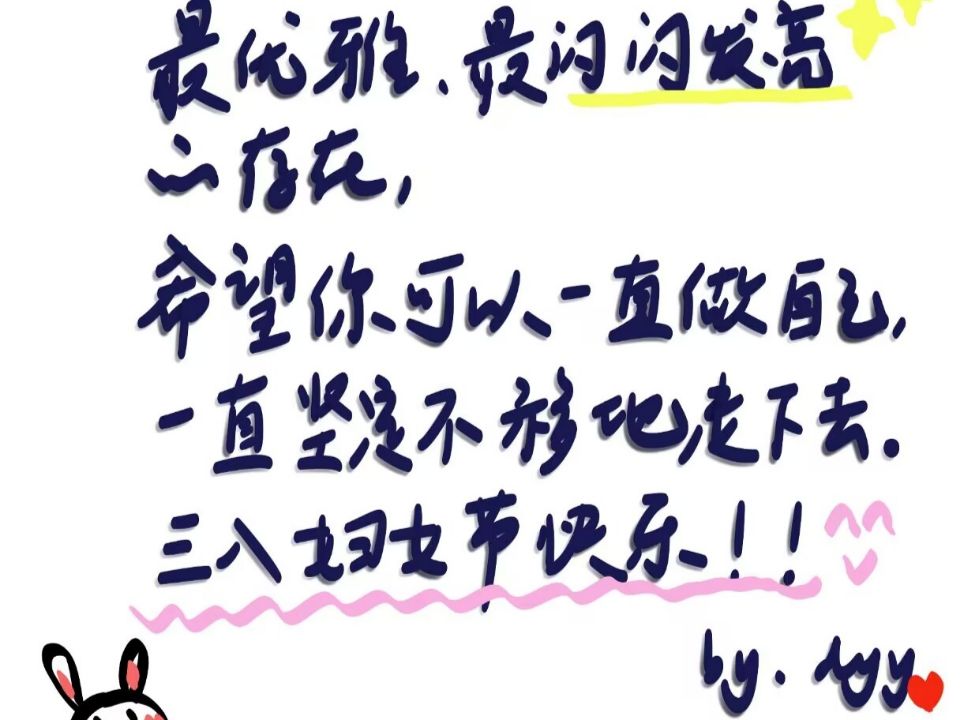 最优雅、最闪闪发亮
的存在,
希望你可以一直做自己,
一直坚定不移地走下去.
三八妇女节快乐!!
by.